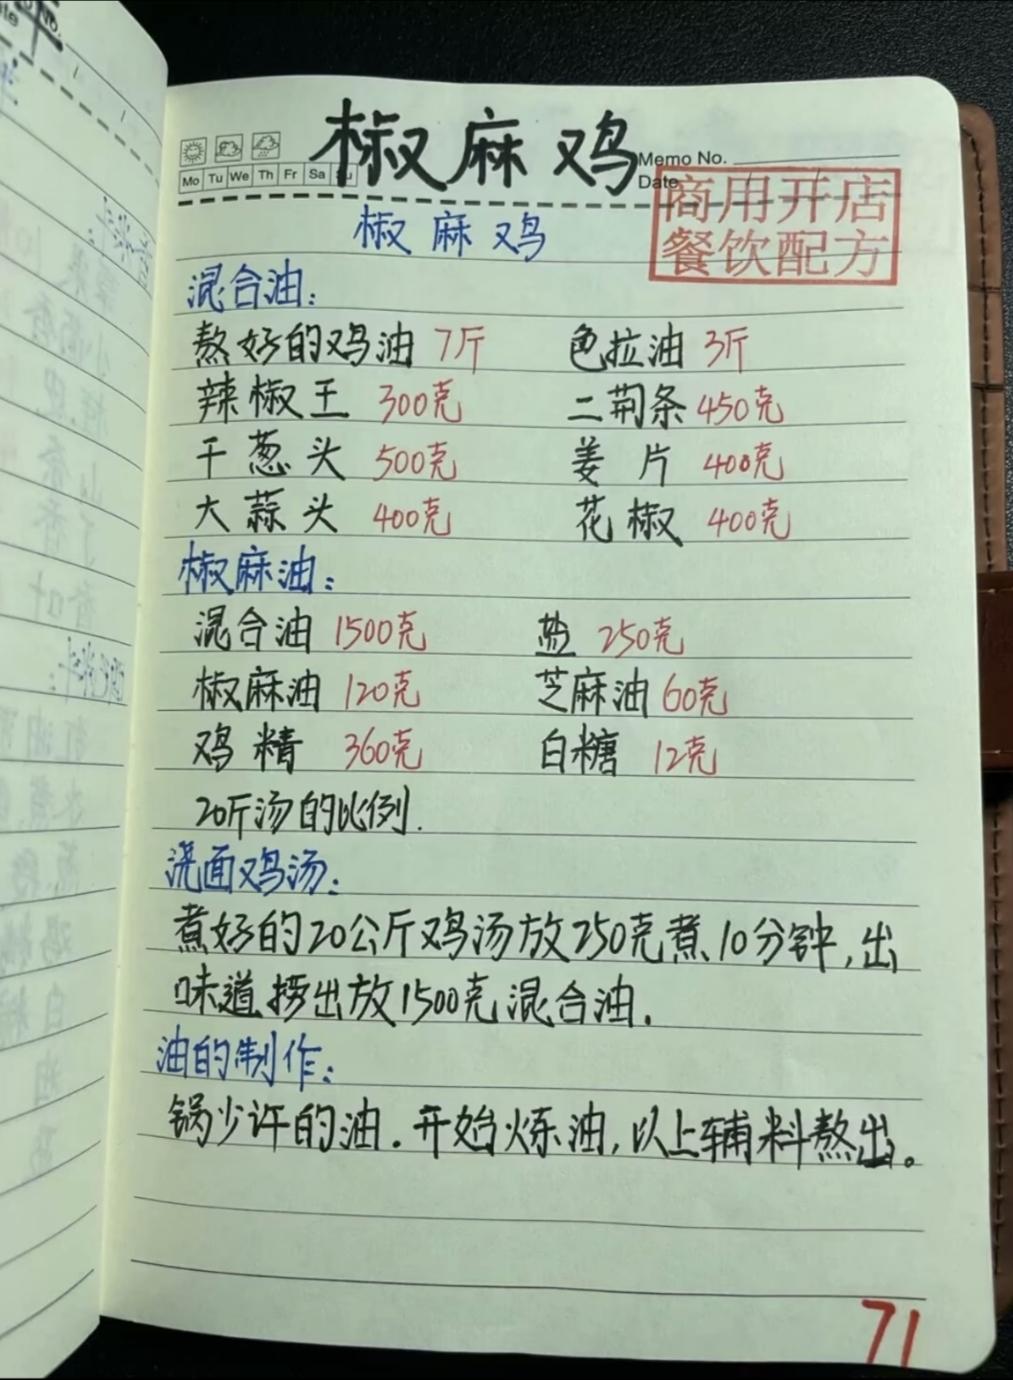 椒麻鸡
Memo No.
Mo Tu We Th Fr Sa Su
Date
商用开店
餐饮配方
椒麻鸡
混合油：
熬好的鸡油 7斤 色拉油 3斤
辣椒王 300克 二荆条 450克
干葱头 500克 姜片 400克
大蒜头 400克 花椒 400克
椒麻油：
混合油 1500克 盐 250克
椒麻油 120克 芝麻油 60克
鸡精 360克 白糖 12克
20斤汤的比例.
浇面鸡汤：
煮好的20公斤鸡汤放250克煮10分钟,出
味道捞出放1500克混合油.
油的制作：
锅少许的油.开始炼油,以上辅料熬出。
71